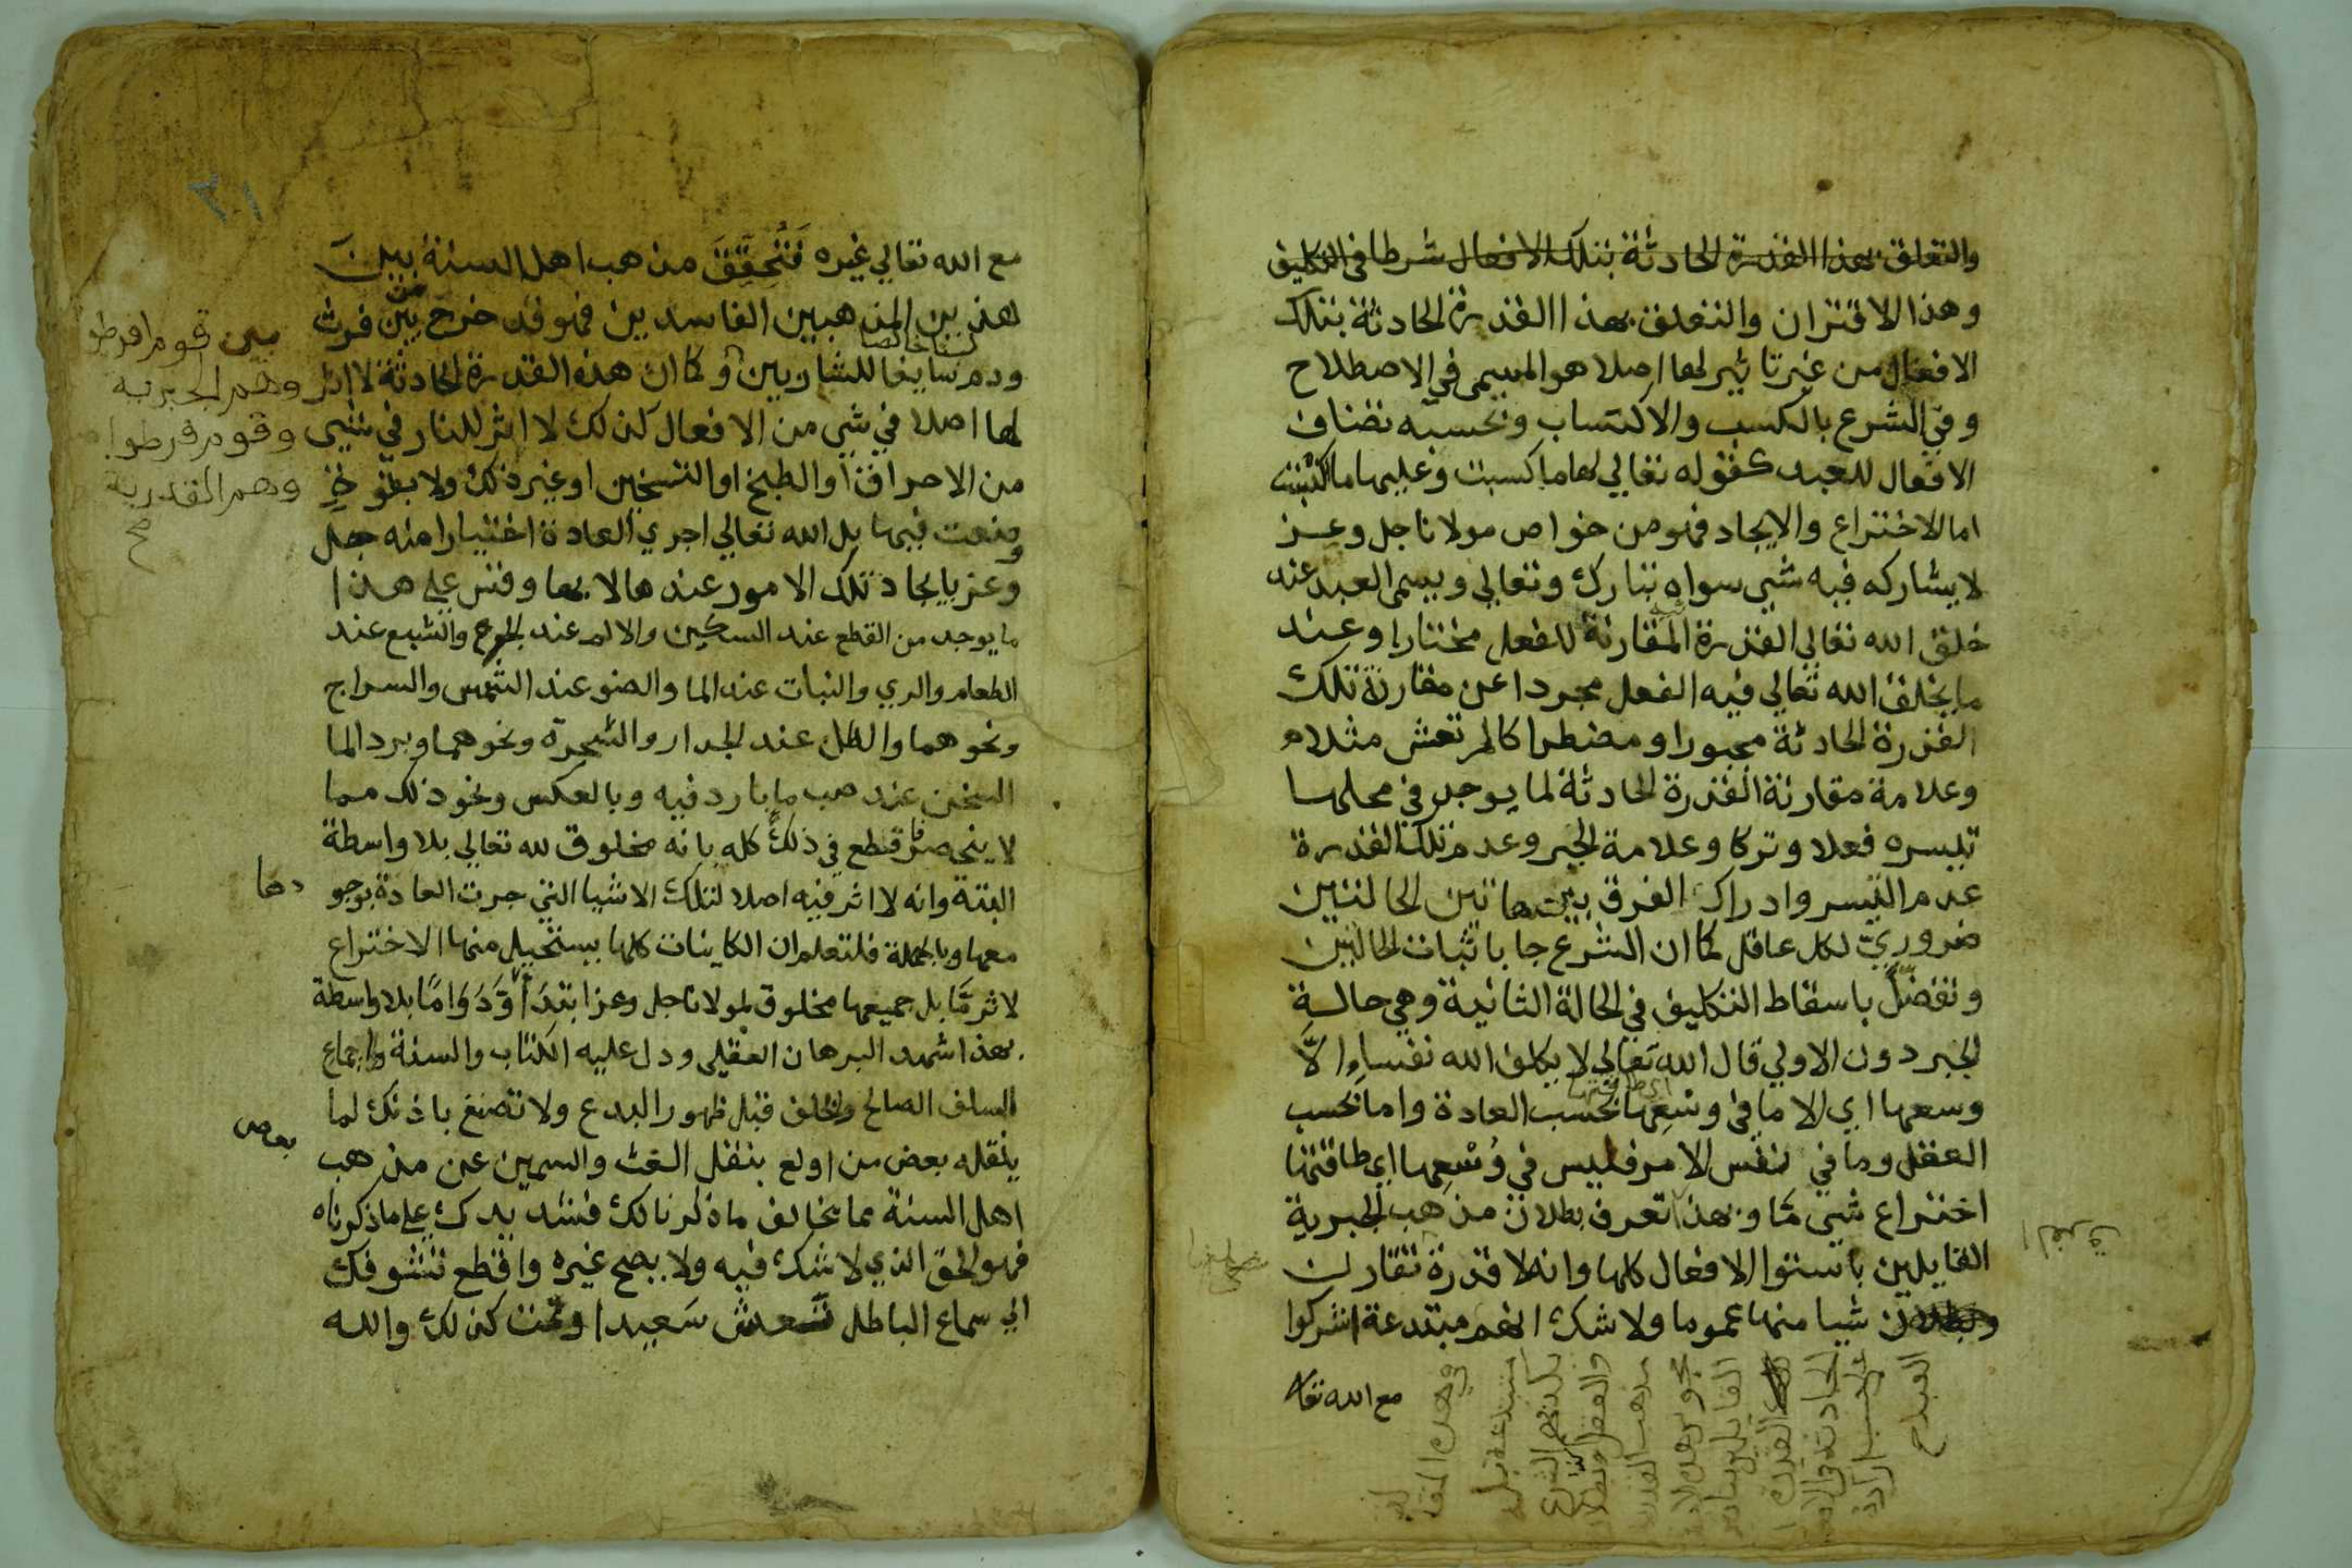 والتعلق بهذا القدرة الحادثة بتلك الافعال شرطا في التكليف
وهذا الاقتران والتعلق بهذا القدرة الحادثة بتلك
الافعال من غير تاثير لها اصلا هو المسمى في الاصطلاح
وفي الشرع بالكسب والاكتساب وبحسبه تضاف
الافعال للعبد كقوله تعالي لها ما كسبت وعليها ما اكتسبت
اما الاختراع والايجاد فهو من خواص مولانا جل وعز
لا يشاركه فيه شي سواه تبارك وتعالي ويسمى العبد عند
خلق الله تعالي القدرة المقارنة للفعل مختارا وعند
ما يخلق الله تعالي فيه الفعل مجردا عن مقارنة تلك
القدرة الحادثة مجبورا ومضطرا كالمرتعش مثلا
وعلامة مقارنة القدرة الحادثة لما يوجد في محلها
تيسره فعلا وتركا وعلامة الجبر وعدم تلك القدرة
عدم التيسر وادراك الفرق بين هاتين الحالتين
ضروري لكل عاقل كما ان الشرع جا باثبات الحالتين
وتفضل باسقاط التكليف في الحالة الثانية وهي حالة
الجبر دون الاولي قال الله تعالي لا يكلف الله نفسا الا
وسعها اي الا ما في وسعها بحسب العادة واما بحسب
اي طاقتها
العقل وما في نفس الامر فليس في وسعها اي طاقتها
اختراع شي ما وبهذا تعرف بطلان مذهب الجبرية
القايلين باستوا الافعال كلها وانه لا قدرة تقارن
شيا منها عموما ولا شك انهم مبتدعة اشركوا
مع الله تعا
مع الله تعالي غيره فتحقق مذهب اهل السنة بين
هذين المذهبين الفاسدين فهو قد خرج من بين فرث
لبنا خالصا
ودم سايغا للشاربين وكما ان هذه القدرة الحادثة لا اثر
لها اصلا في شي من الافعال كذلك لا اثر للنار في شي
من الاحراق او الطبخ او التسخين او غير ذلك ولا بطبع
وضعت فيها بل الله تعالي اجري العادة اختيارا منه جل
وعز بايجاد تلك الامور عندها لا بها وقس علي هذا
ما يوجد من القطع عند السكين والالم عند الجرح والشبع عند
الطعام والري والنبات عند الما والضو عند الشمس والسراج
ونحوهما والظل عند الجدار والشجرة ونحوهما وبرد الما
السخين عند صب ما بارد فيه وبالعكس ونحو ذلك مما
لا ينحصر فاقطع في ذلك كله بانه مخلوق لله تعالي بلا واسطة
البتة وانه لا اثر فيه اصلا لتلك الاشيا التي جرت العادة بوجو
دها
معها وبالجملة فلتعلم ان الكاينات كلها يستحيل منها الاختراع
لاثر ما بل جميعها مخلوق لمولانا جل وعز ابتدا ودواما بلا واسطة
بهذا شهد البرهان العقلي ودل عليه الكتاب والسنة واجماع
السلف الصالح والخلف قبل ظهور البدع ولا تصغ باذنك لما
ينقله بعض من اولع بنقل الغث والسمين عن مذهب
بعض
اهل السنة مما يخالف ما ذكرنا لك فشد يدك علي ما ذكرناه
فهو الحق الذي لا شك فيه ولا يصح غيره واقطع تشوفك
الي سماع الباطل تعش سعيدا وتمت كذلك والله
بين قوم افرطوا
وهم الجبرية
وقوم فرطوا
وهم القدرية
صح